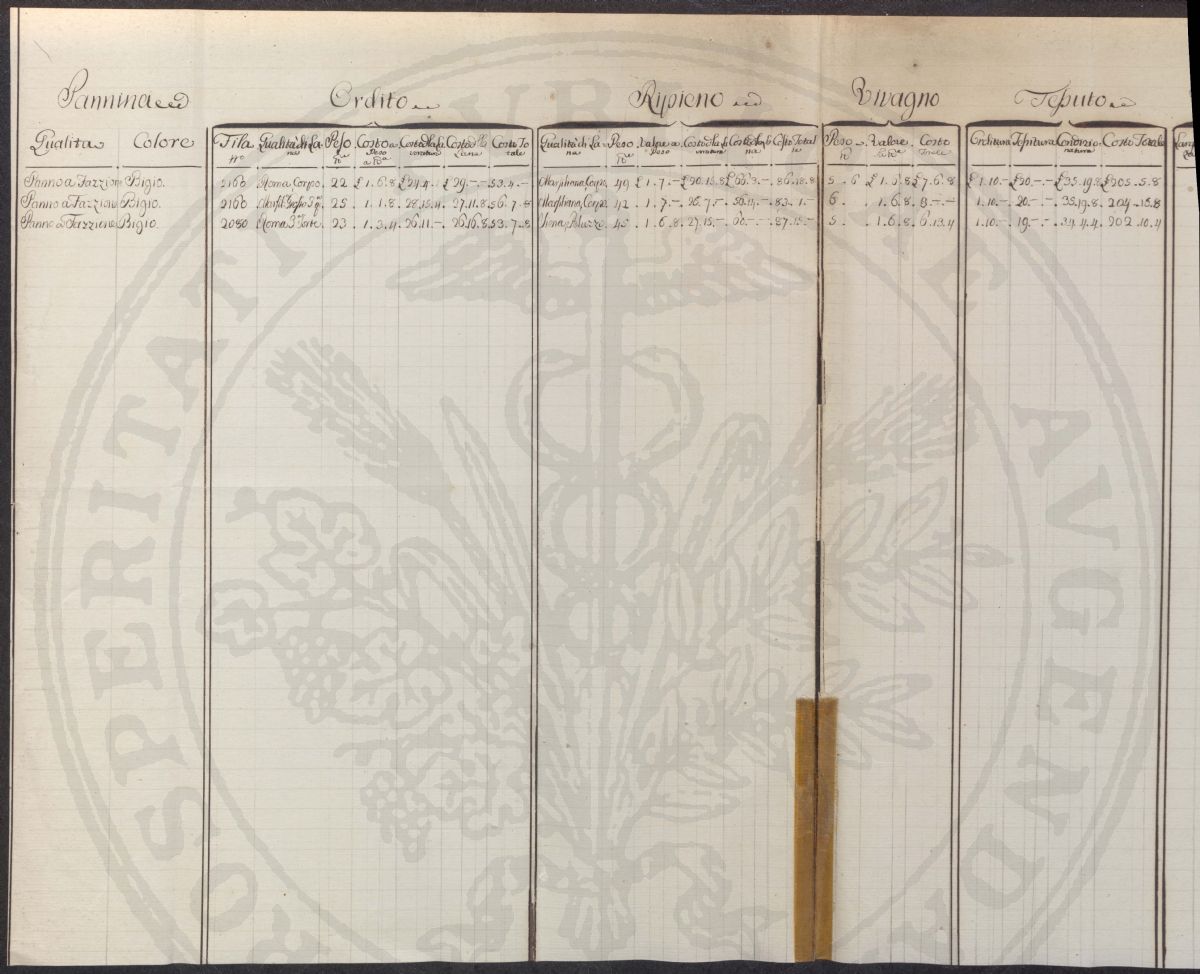 Pannina Ordito Ripieno Vivagno Tessuto
Qualità Colore Fila Qualità di Lana Peso Costo a Peso Costo Costo Lana Costo Totale Qualità di Lana Peso Valore a Peso Costo Costo Lana Costo Totale Peso Valore Costo Totale Orditura Tessitura Condizionatura Costo Totale
Panno a Fazzione Bigio. 2160 Roma Corpo. 22 £ 1.6.8 £ 24.4. £ 29.-.- 53.4.- Corpo 49 £ 1.7.- £ 20.15.8 £ 66.3.- 86.18.8 5.6 £ 1.6.8 £ 7.6.8 £ 1.10.- £ 20.-.- £ 35.19.8 £ 205.5.8
Panno a Fazzione Bigio. 2160 25. 1.1.8. 28.15.4. 27.11.8. 56.7.- Corpo 42. 1.7.- 26.7.- 56.14.- 83.1.- 6. 1.6.8. 8.-.- 1.10.- 20.-.- 35.19.8. 204.18.8
Panno a Fazzione Bigio. 2080 Roma 23. 1.3.4. 26.11.-. 26.16.8. 53.7.8 45. 1.6.8. 27.15.-. 60.-.- 87.15.- 5. 1.6.8. 6.13.4 1.10.- 19.-.- 34.4.4. 202.10.4
PROSPERITATI PVBLICAE AVGENDAE